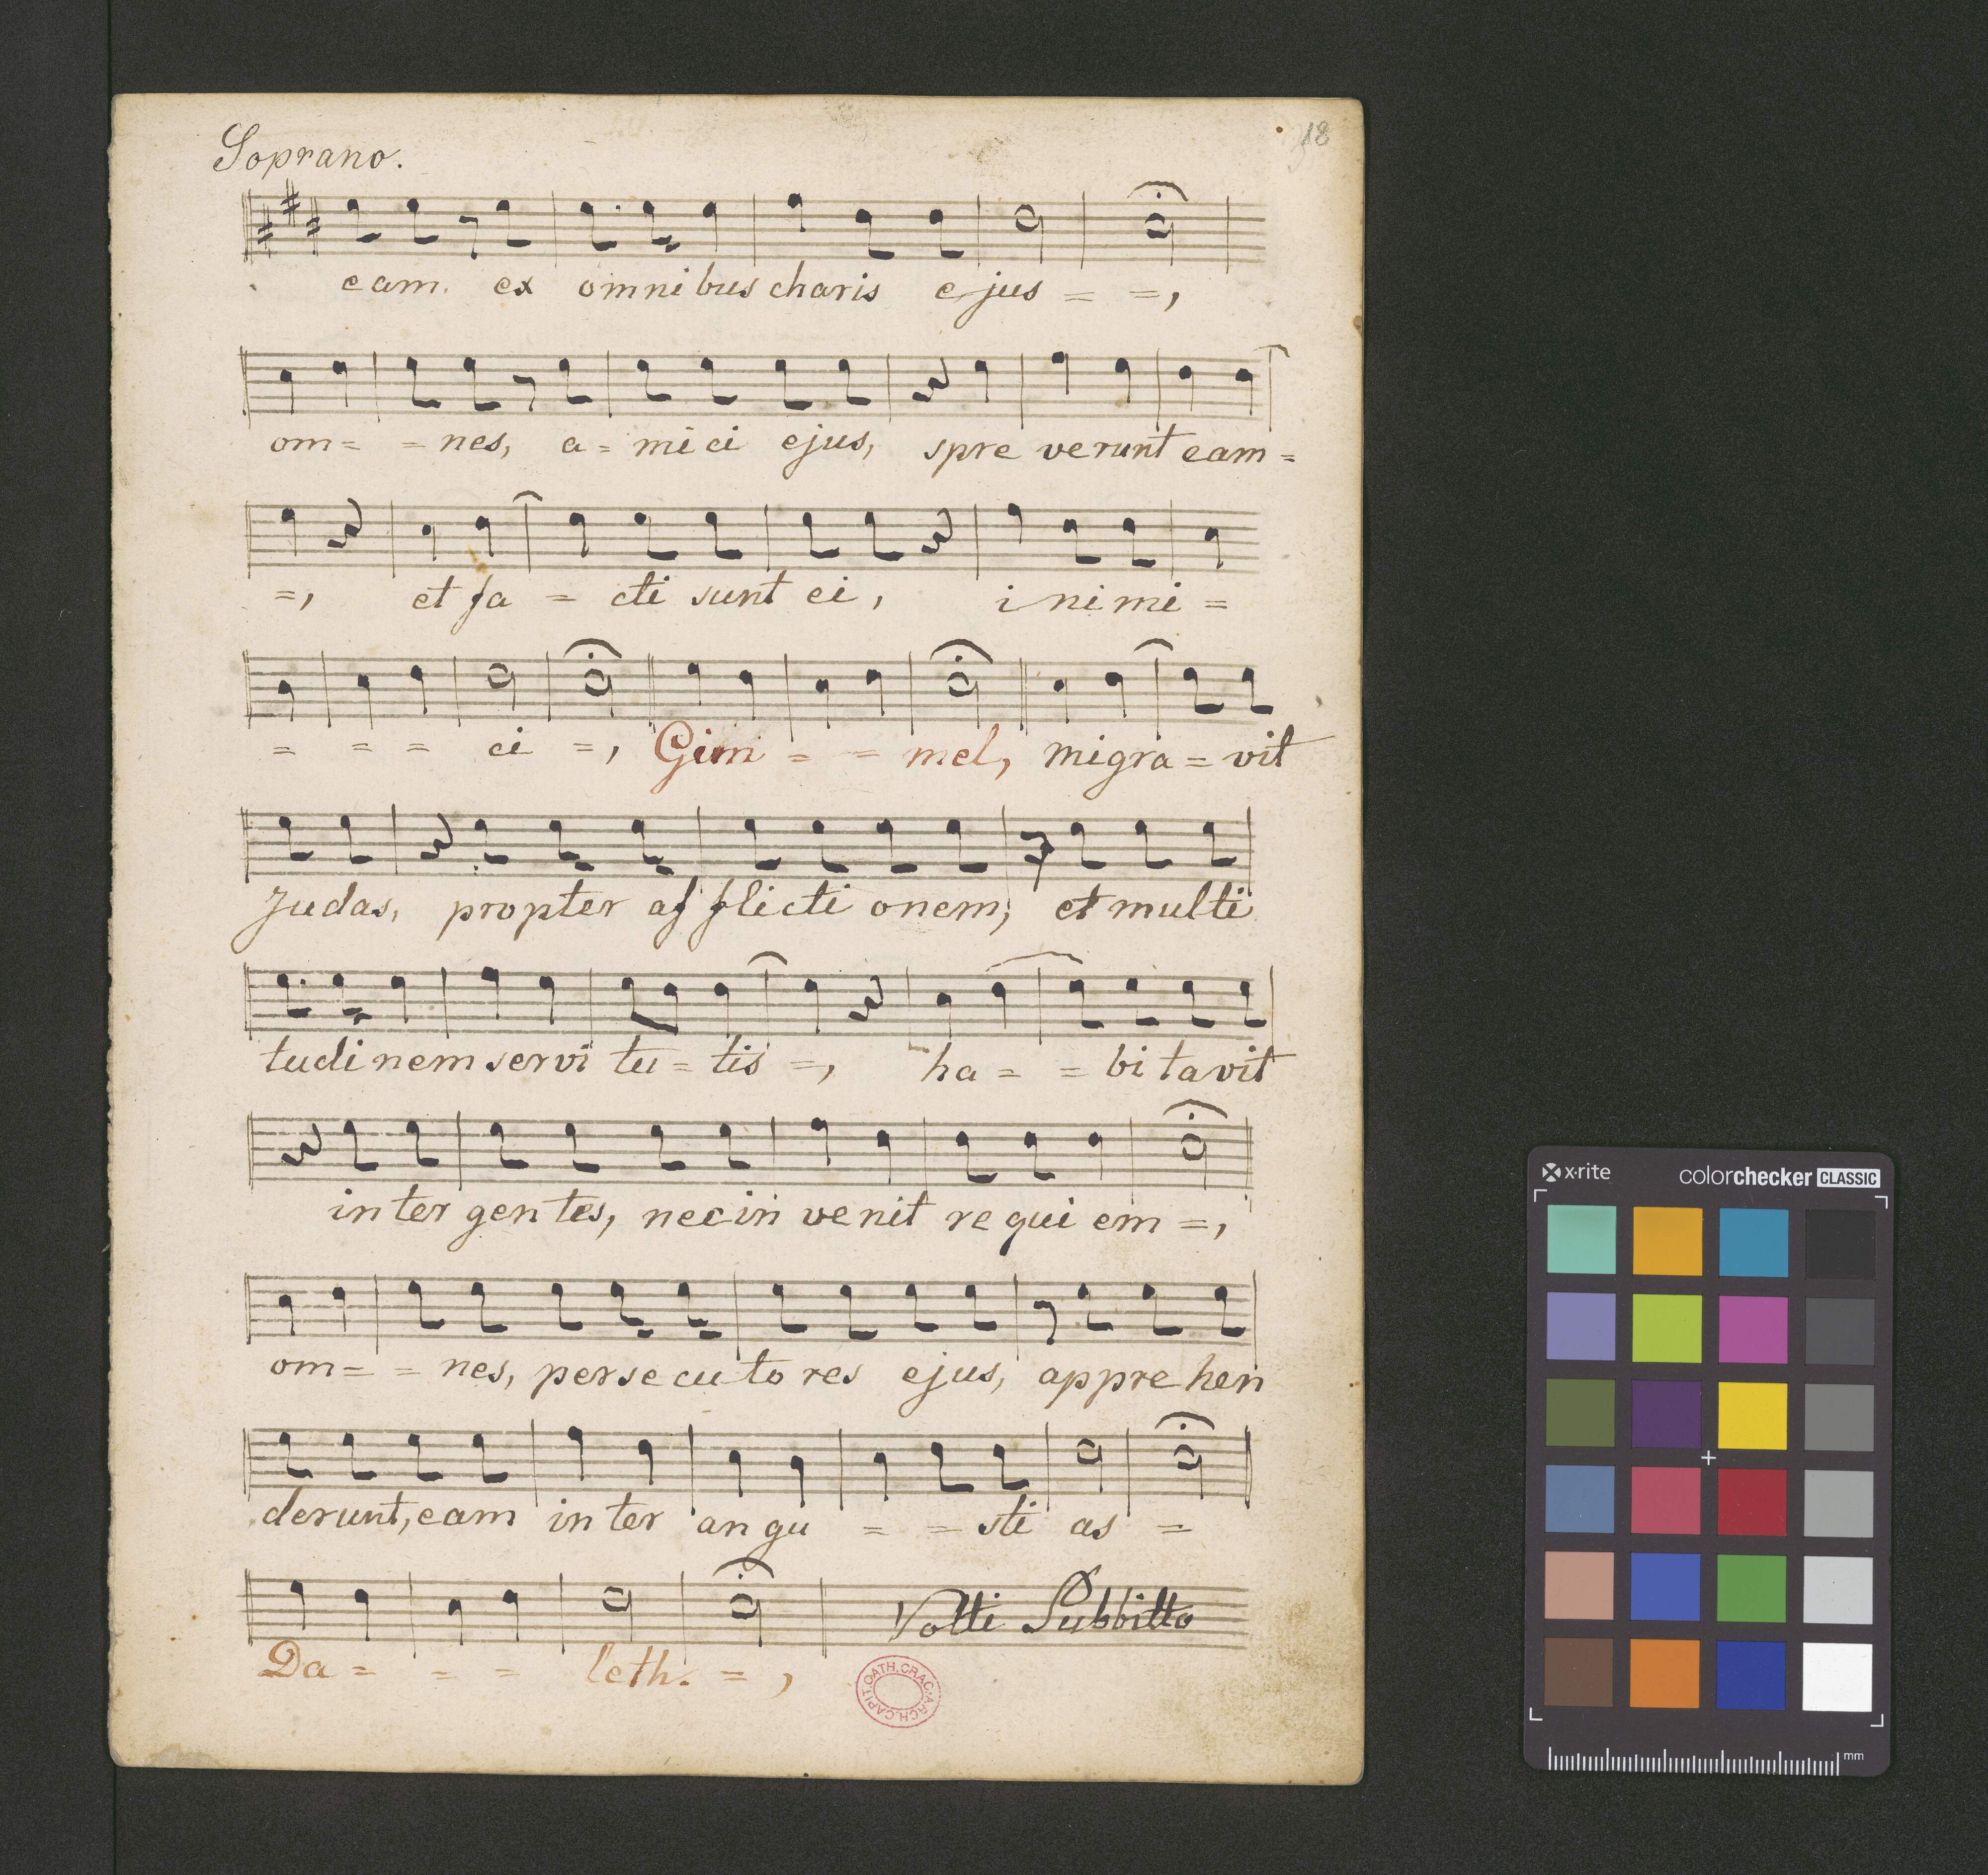 Soprano.
18
eam. ex omnibus charis ejus = =,
om= = nes, a = mici ejus, spre verunt eam =
=, et fa = cti sunt ei, i ni mi =
= = = ci =, Gim = = mel, migra = vit
Judas, propter af flicti onem; et multi
tudi nem servi tu = tis =, ha = = bi ta vit
in ter gen tes, nec in ve nit re qui em =,
om= = nes, per se cu to res ejus, appre hen
derunt, eam in ter an gu = = sti as =
Volti Subbitto
Da = = = leth. = ,
CAPIT. CATH. CRAC. ARCH.
x·rite colorchecker CLASSIC
mm